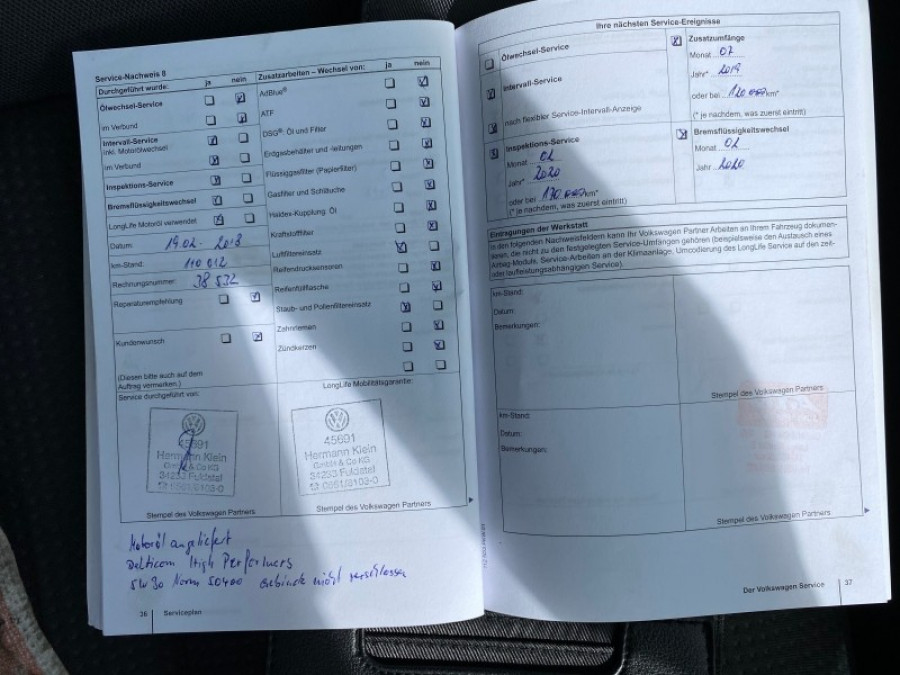 Service-Nachweis 8
Durchgeführt wurde: ja nein
Ölwechsel-Service
im Verbund
Intervall-Service
inkl. Motorölwechsel
im Verbund
Inspektions-Service
Bremsflüssigkeitswechsel
LongLife Motoröl verwendet
Datum: 19.02. 2018
km-Stand: 110 012
Rechnungsnummer: 38 532
Reparaturempfehlung
Kundenwunsch
(Diesen bitte auch auf dem
Auftrag vermerken.)
Service durchgeführt von:
45691
Hermann Klein
GmbH & Co KG
Stempel des Volkswagen Partners
Zusatzarbeiten – Wechsel von: ja nein
AdBlue®
ATF
DSG®: Öl und Filter
Erdgasbehälter und -leitungen
Flüssiggasfilter (Papierfilter)
Gasfilter und Schläuche
Haldex-Kupplung: Öl
Kraftstofffilter
Luftfiltereinsatz
Reifendrucksensoren
Reifenfüllflasche
Staub- und Pollenfiltereinsatz
Zahnriemen
Zündkerzen
LongLife Mobilitätsgarantie:
45691
Hermann Klein
GmbH & Co KG
34233 Fuldatal
Stempel des Volkswagen Partners
Motoröl angeliefert
High Performers
5W30 Norm 50400 Gebinde nicht verschlossen
36 Serviceplan
Ihre nächsten Service-Ereignisse
Ölwechsel-Service
Intervall-Service
nach flexibler Service-Intervall-Anzeige
Inspektions-Service
Monat 02
Jahr* 2020
oder bei 130 000 km*
(* je nachdem, was zuerst eintritt)
Zusatzumfänge
Monat 02
Jahr* 2019
oder bei 120 000 km*
(* je nachdem, was zuerst eintritt)
Bremsflüssigkeitswechsel
Monat 02
Jahr 2020
Eintragungen der Werkstatt
In den folgenden Nachweisfeldern kann Ihr Volkswagen Partner Arbeiten an Ihrem Fahrzeug dokumen-
tieren, die nicht zu den festgelegten Service-Umfängen gehören (beispielsweise den Austausch eines
Airbag-Moduls, Service-Arbeiten an der Klimaanlage, Umcodierung des LongLife Service auf den zeit-
oder laufleistungsabhängigen Service).
km-Stand:
Datum:
Bemerkungen:
Stempel des Volkswagen Partners
km-Stand:
Datum:
Bemerkungen:
Stempel des Volkswagen Partners
Der Volkswagen Service 37